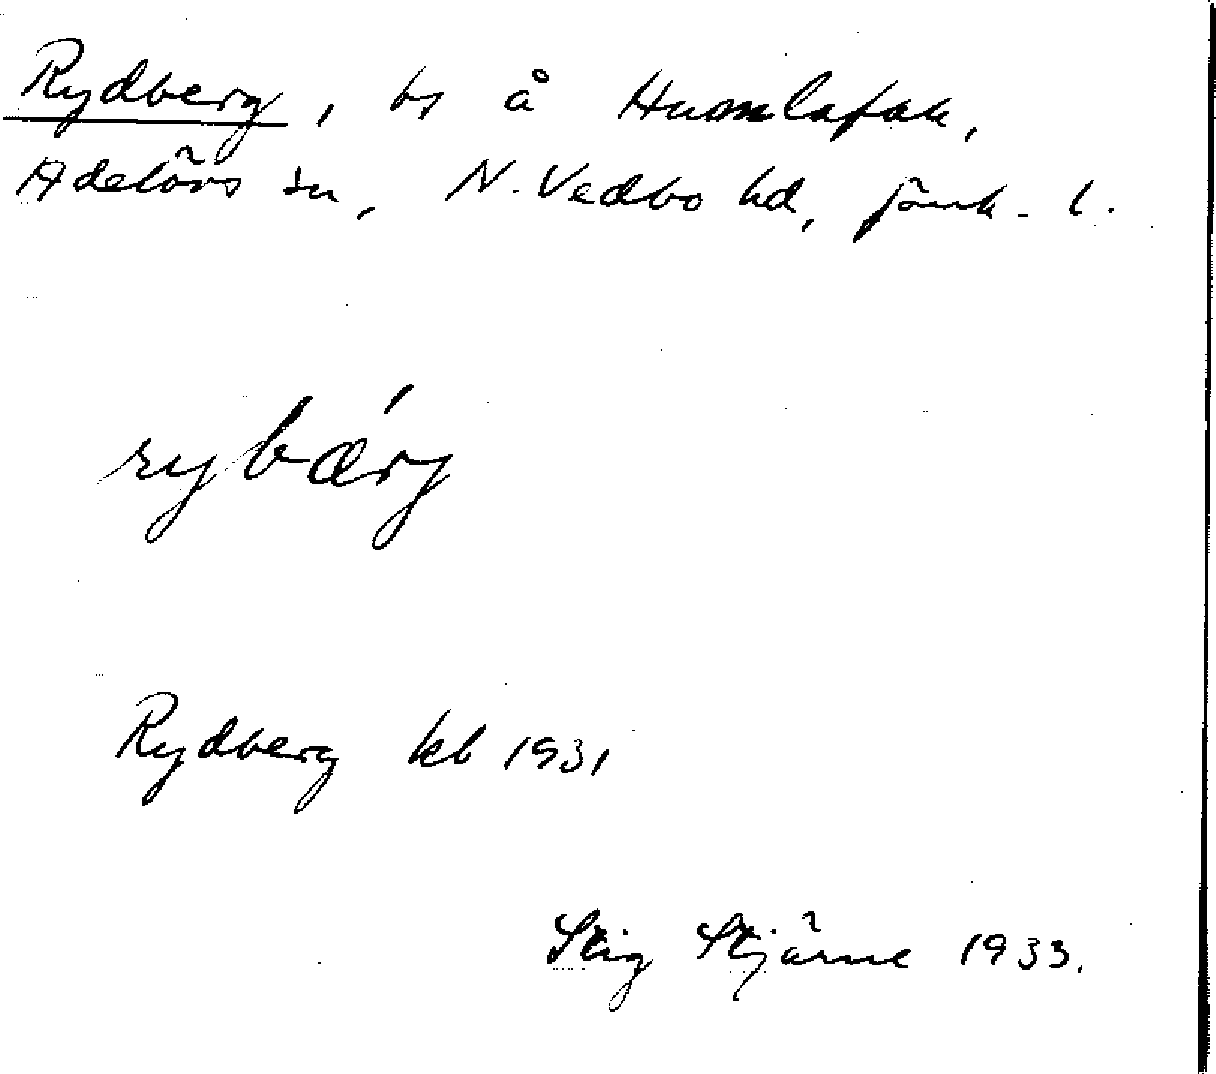 Rydberg, bs å Humlafall,
Adelövs sn, N. Vedbo hd, Jönk. l.
rybærj
Rydberg kb 1931
Stig Stjärne 1933.